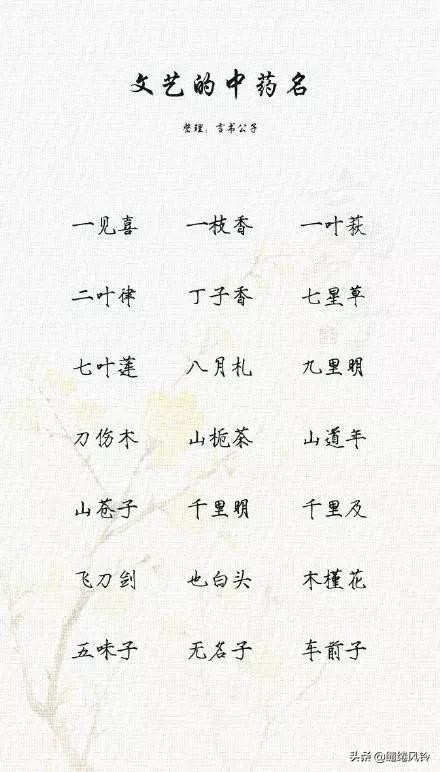 文艺的中药名
整理：言书公子
一见喜 一枝香 一叶荻
二叶律 丁子香 七星草
七叶莲 八月札 九里明
刀伤木 山栀茶 山道年
山苍子 千里明 千里及
飞刀剑 也白头 木槿花
五味子 无名子 车前子
头条 @缱绻风铃